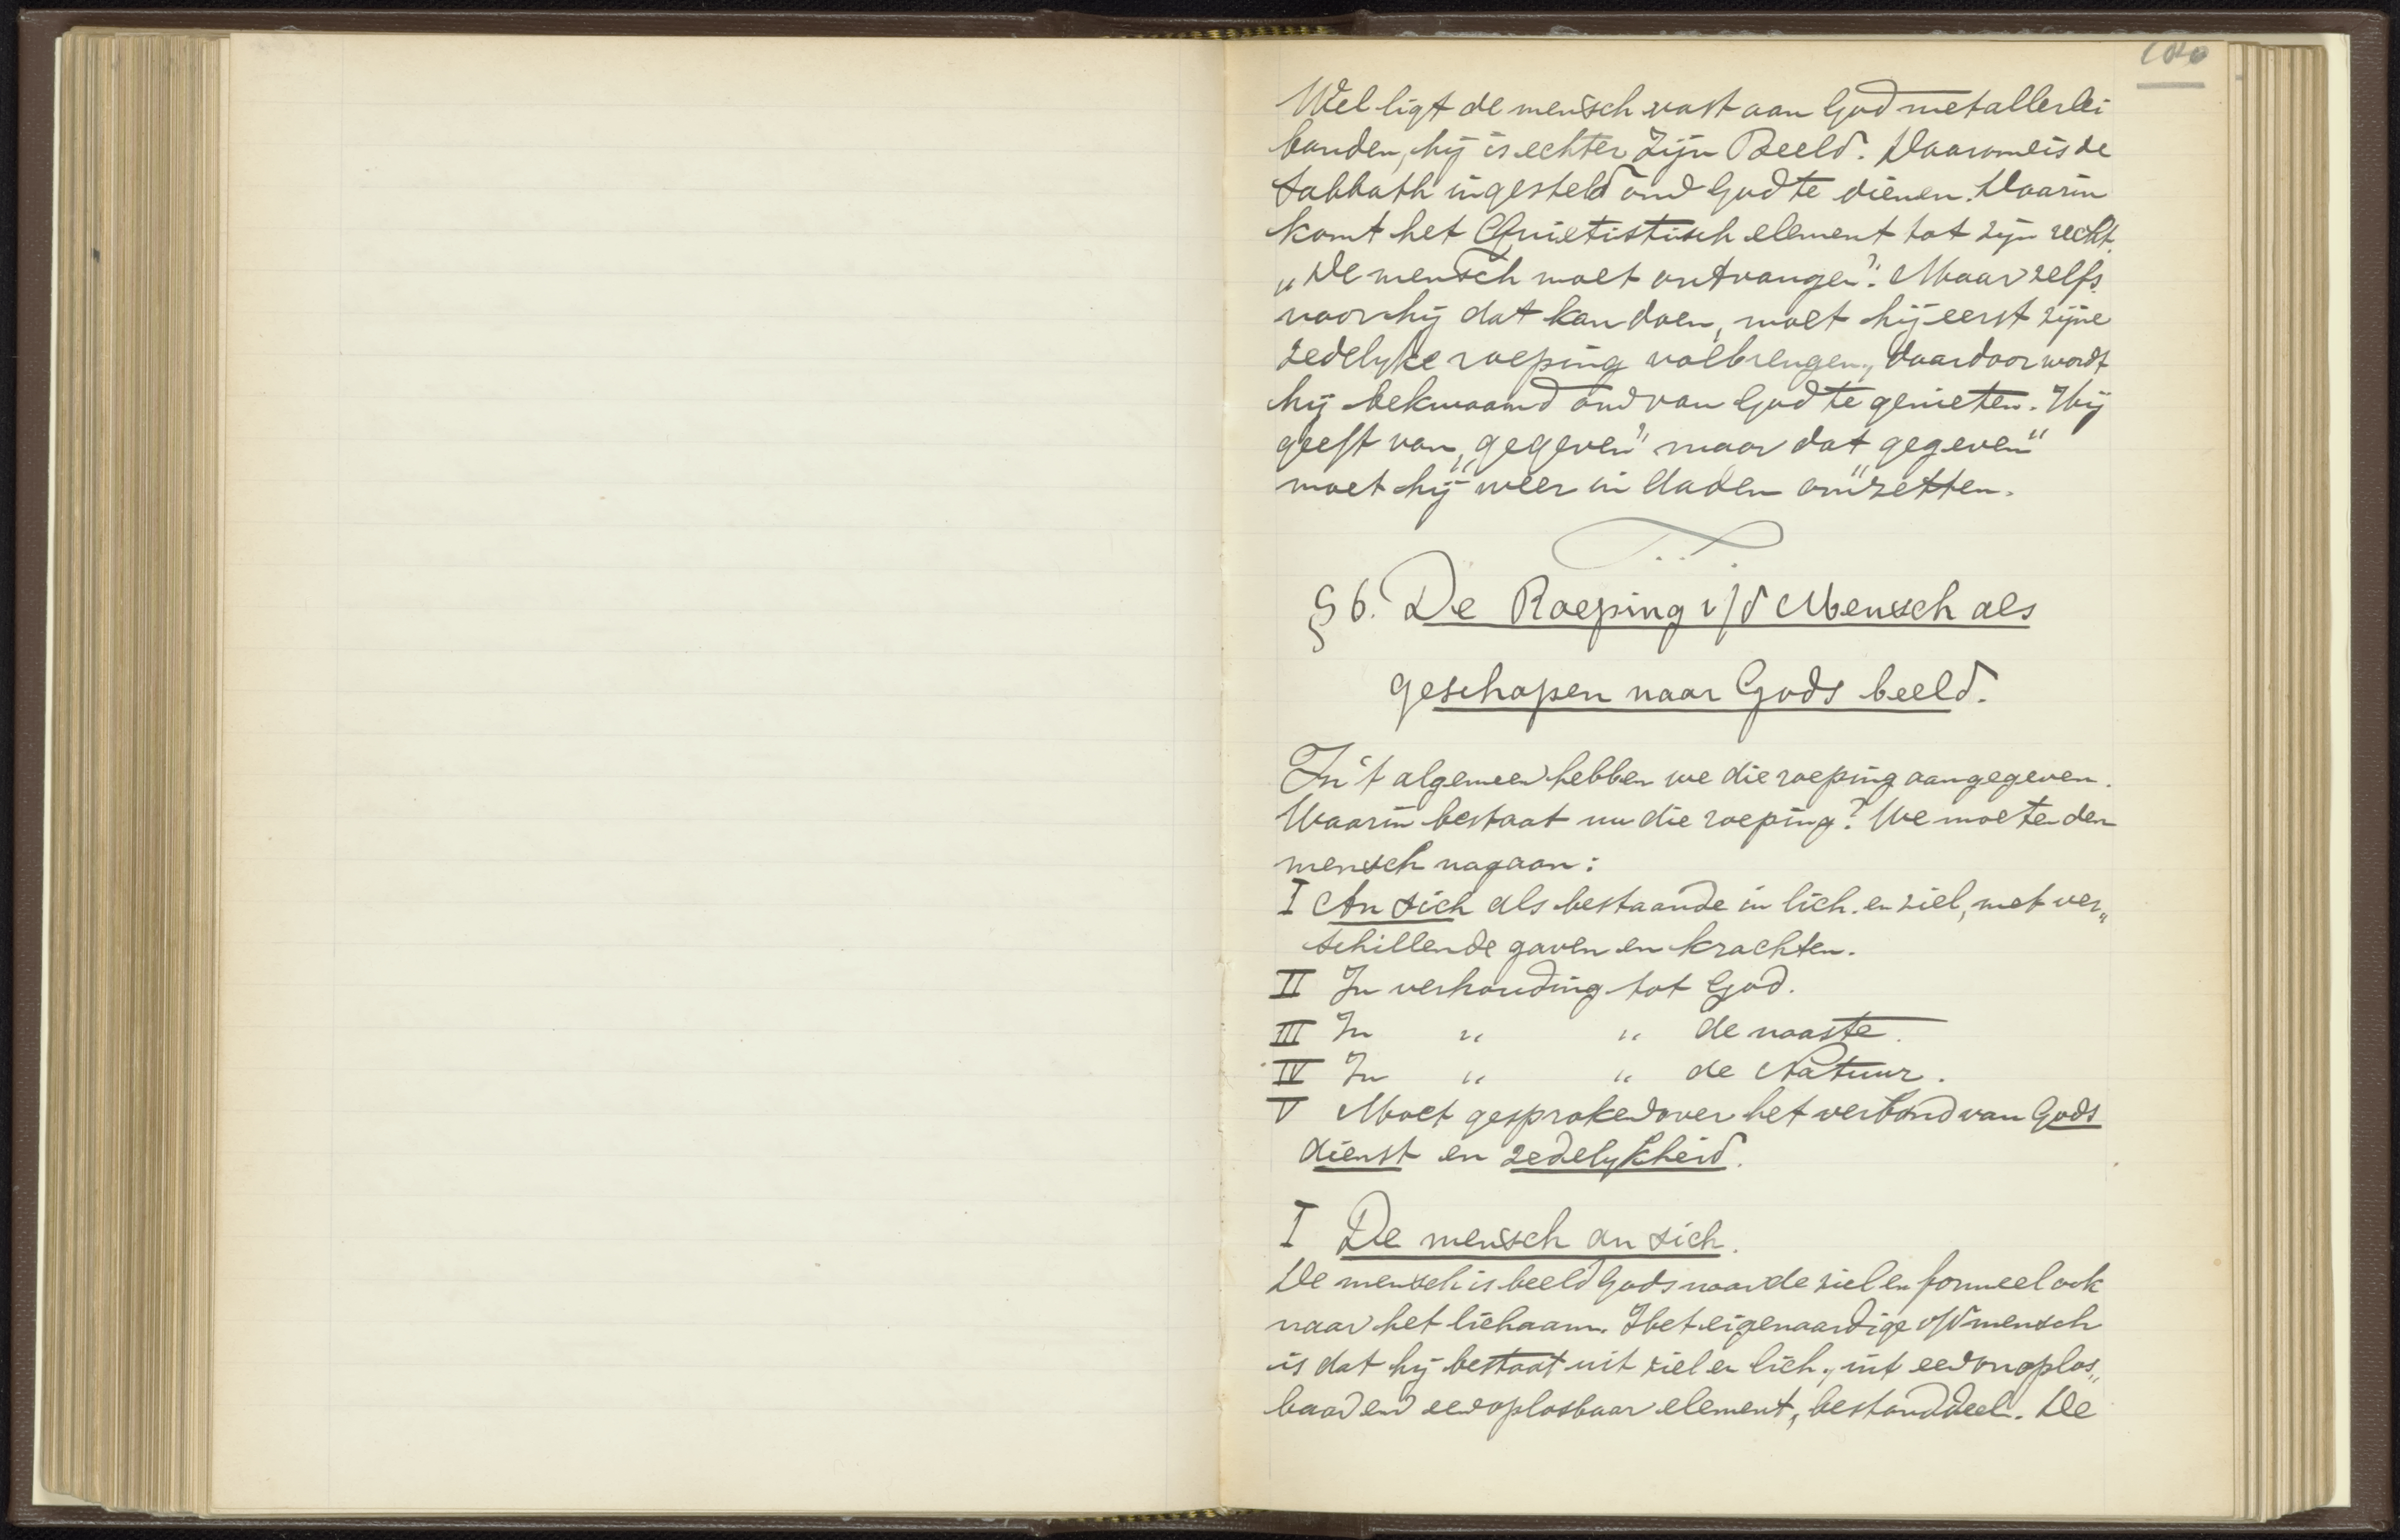 Wel ligt de mensch vast aan God met allerlei
banden, hij is echter Zijn Beeld. Daarom is de
Sabbath ingesteld om God te dienen. Daarin
komt het Quietistisch element tot zijn recht.
„De mensch moet ontvangen". Maar zelfs
voor hij dat kan doen, moet hij eerst zijne
zedelyke roeping volbrengen, daardoor wordt
hij bekwaamd om van God te genieten. Hij
geeft van „gegeven" maar dat „gegeven"
moet hij weer in daden „omzetten.
§ 6. De Roeping v/d Mensch als
geschapen naar Gods beeld.
In 't algemeen hebben we die roeping aangegeven.
Waarin bestaat nu die roeping? We moeten den
mensch nagaan:
I An sich als bestaande in lich. en ziel, met ver„
schillende gaven en krachten.
II In verhouding tot God.
III In " " de naaste.
IV In " " de Natuur.
V Moet gesproken over het verband van Gods
dienst en zedelykheid.
I De mensch an sich.
De mensch is beeld Gods naar de ziel en formeel ook
naar het lichaam. Het eigenaardige v/d mensch
is dat hij bestaat uit ziel en lich., uit een onoplos„
baar en een oplosbaar element, bestanddeel. De